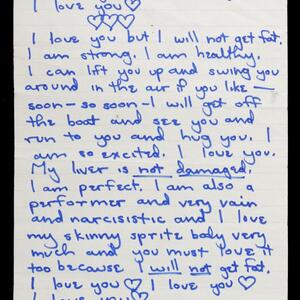 I love you ♡
♡♡♡♡
I love you but I will not get fat.
I am strong. I am healthy.
I can lift you up and swing you
around in the air if you like —
soon — so soon — I will get off
the boat and see you and
run to you and hug you. I
am so excited. I love you.
My liver is not damaged.
I am perfect. I am also a
performer and very vain
and narcisistic and I love
my skinny sprite body very
much and you must love it
too because I will not get fat.
I love you ♡ I love you ♡
I love you ♡